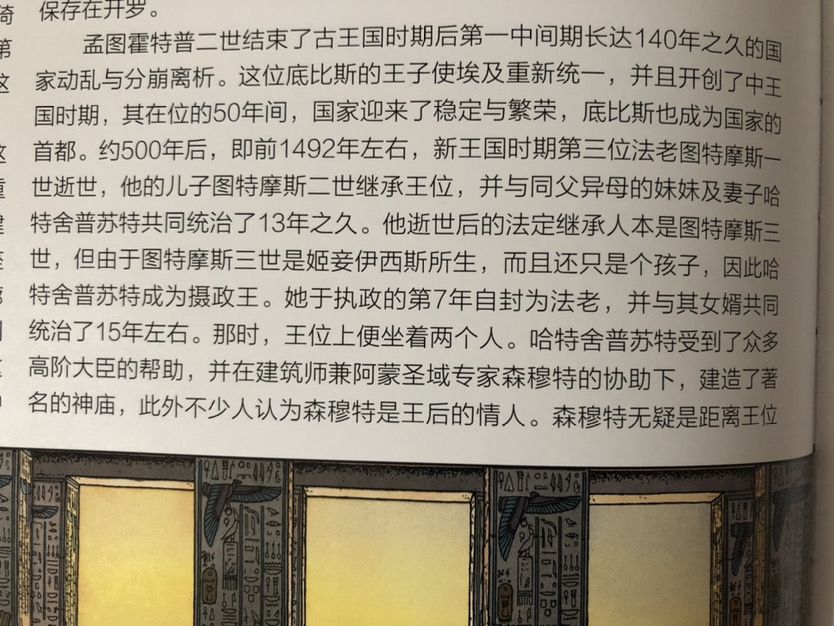 倚
第
这
这
重
保存在开罗。
孟图霍特普二世结束了古王国时期后第一中间期长达140年之久的国
家动乱与分崩离析。这位底比斯的王子使埃及重新统一，并且开创了中王
国时期，其在位的50年间，国家迎来了稳定与繁荣，底比斯也成为国家的
首都。约500年后，即前1492年左右，新王国时期第三位法老图特摩斯一
世逝世，他的儿子图特摩斯二世继承王位，并与同父异母的妹妹及妻子哈
特舍普苏特共同统治了13年之久。他逝世后的法定继承人本是图特摩斯三
世，但由于图特摩斯三世是姬妾伊西斯所生，而且还只是个孩子，因此哈
特舍普苏特成为摄政王。她于执政的第7年自封为法老，并与其女婿共同
统治了15年左右。那时，王位上便坐着两个人。哈特舍普苏特受到了众多
高阶大臣的帮助，并在建筑师兼阿蒙圣域专家森穆特的协助下，建造了著
名的神庙，此外不少人认为森穆特是王后的情人。森穆特无疑是距离王位